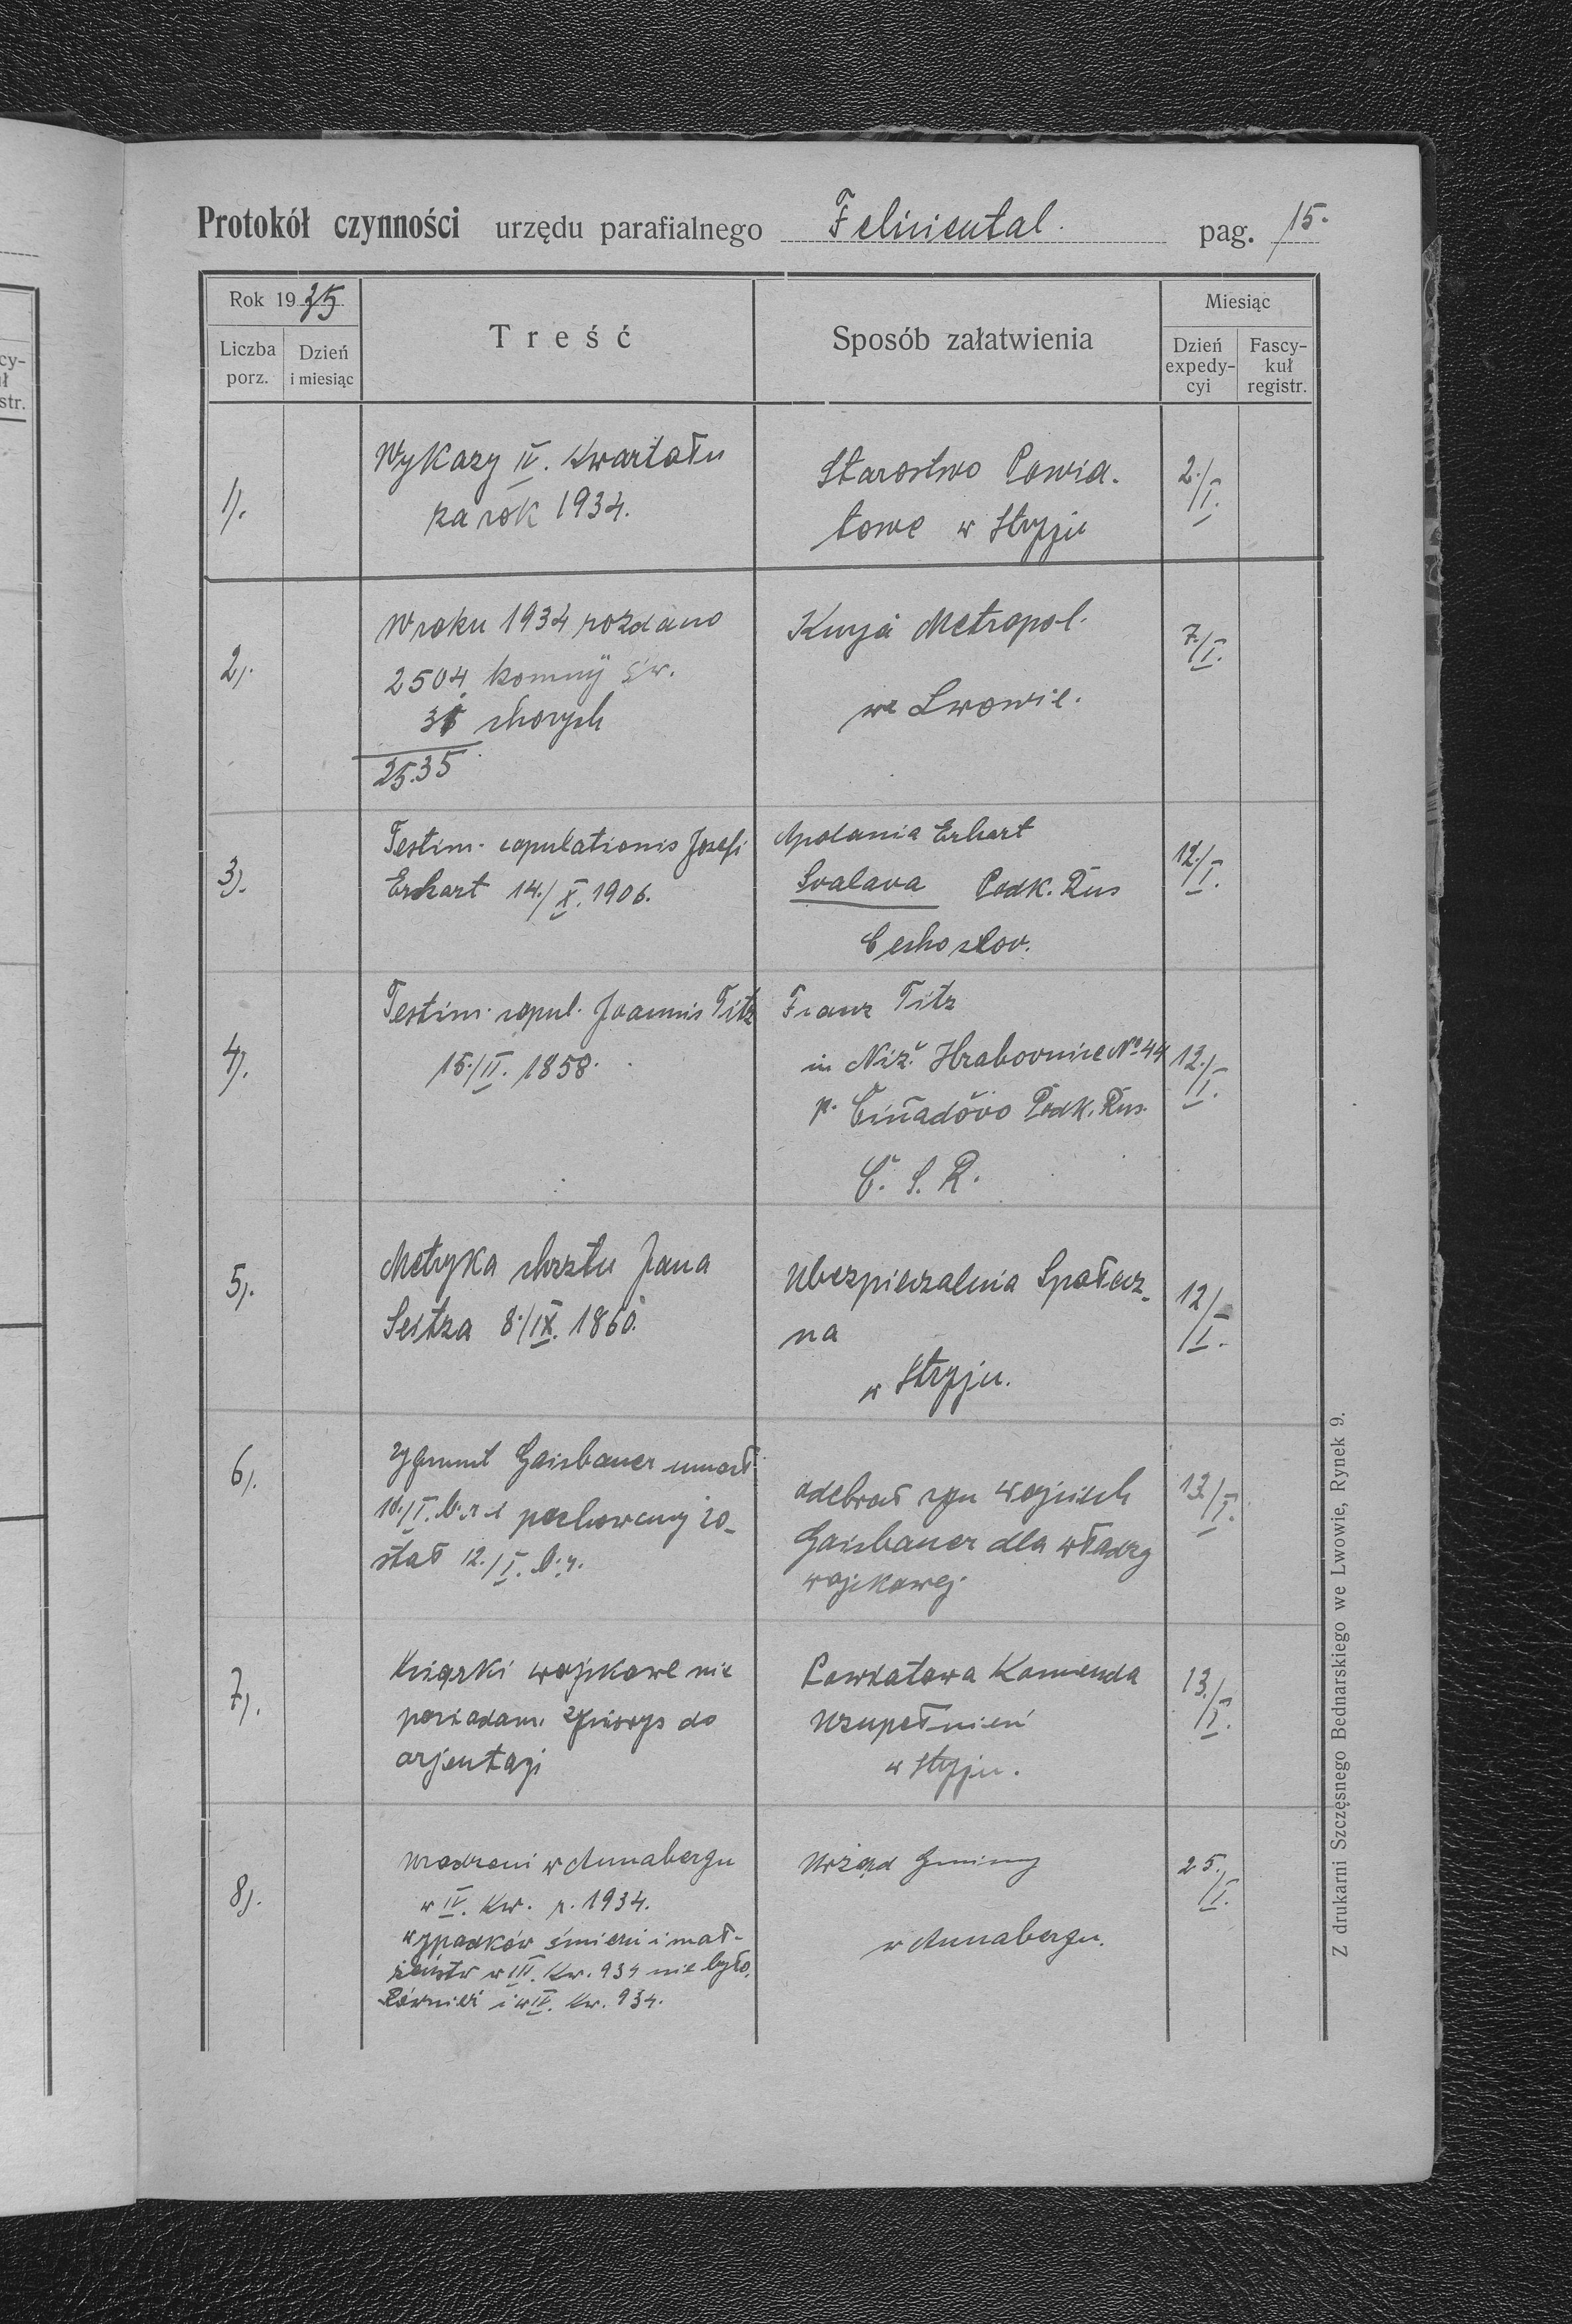 Protokół czynności urzędu parafialnego Felicientul. pag. 15.
Rok 1935
Liczba porz.
Dzień i miesiąc
Treść
Sposób załatwienia
Miesiąc
Dzień expedy-cyi
Fascy-kuł registr.
1).
Wykazy IV. Kwartału
za rok 1934.
Starostwo Powia-
towe w Stryju
2./I.
2).
W roku 1934 rozdano
2504 komunij św.
31 chorych
2535
Kurja Metropol.
we Lwowie.
7./I.
3).
Testim. copulationis Josefi
Erhart 14./X. 1906.
Apolania Erhart
Svalava Podk. Rus
Českoslov.
12./I.
4).
Testim. copul. Joannis Titz
15./II. 1858.
Franz Titz
in Niž. Hrabovnice No 44
p. Činadövo Podk. Rus.
Č. S. R.
12./I.
5).
Metryka chrztu Jana
Seitza 8./IX. 1860.
Ubezpieczalnia Społecz-
na
w Stryju.
12/I.
6).
Zygmunt Gaisbauer umarł
10./I. b. r. i pochowany zo-
stał 12./I. b. r.
odebrał syn Wojciech
Gaisbauer dla władzy
wojskowej.
13./I.
7).
Książki wojskowe nie
posiadam. do
orjentacji
Powiatowa Komenda
Uzupełnień
w Stryju.
13./I.
8).
Urodzeni w Annabergu
w IV. Kw. r. 1934.
wypadków śmierci i mał-
żeństw w III. Kw. 934 nie było.
Również i w IV. Kw. 934.
Urząd Gminny
w Annabergu.
25./I.
Z drukarni Szczęsnego Bednarskiego we Lwowie, Rynek 9.
cy-
ł
str.